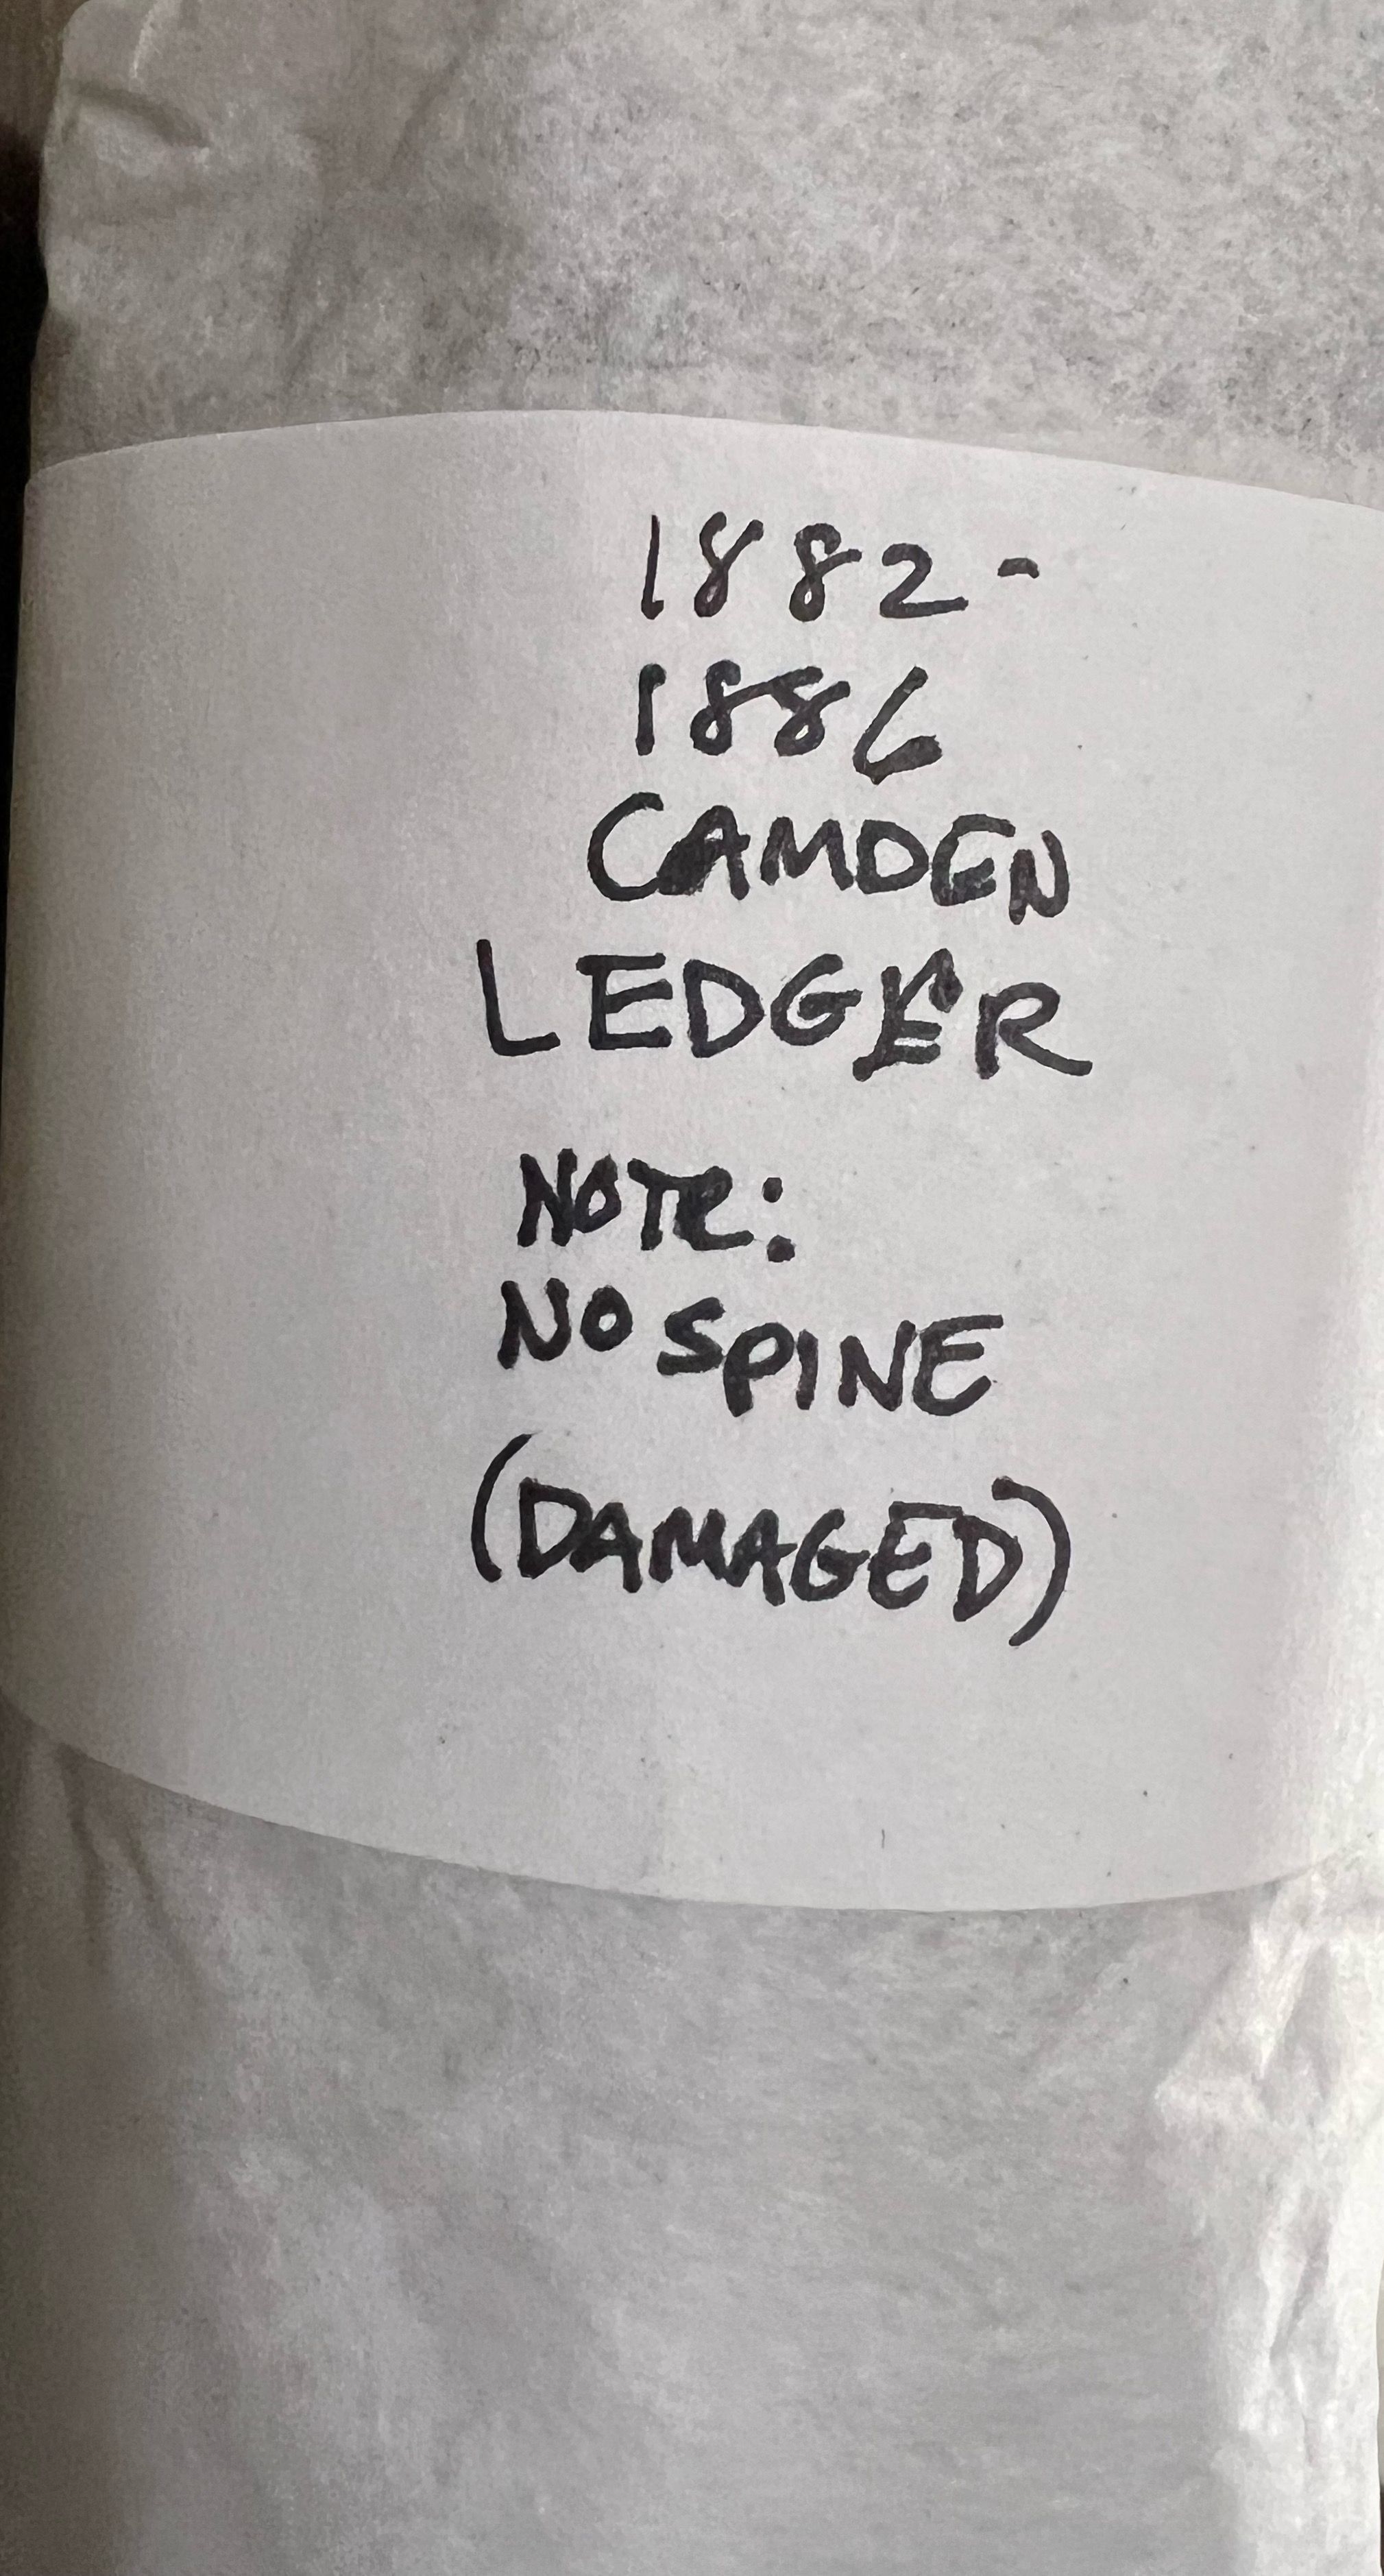 1882-
1886
CAMDEN
LEDGER
NOTE:
NO SPINE
(DAMAGED)